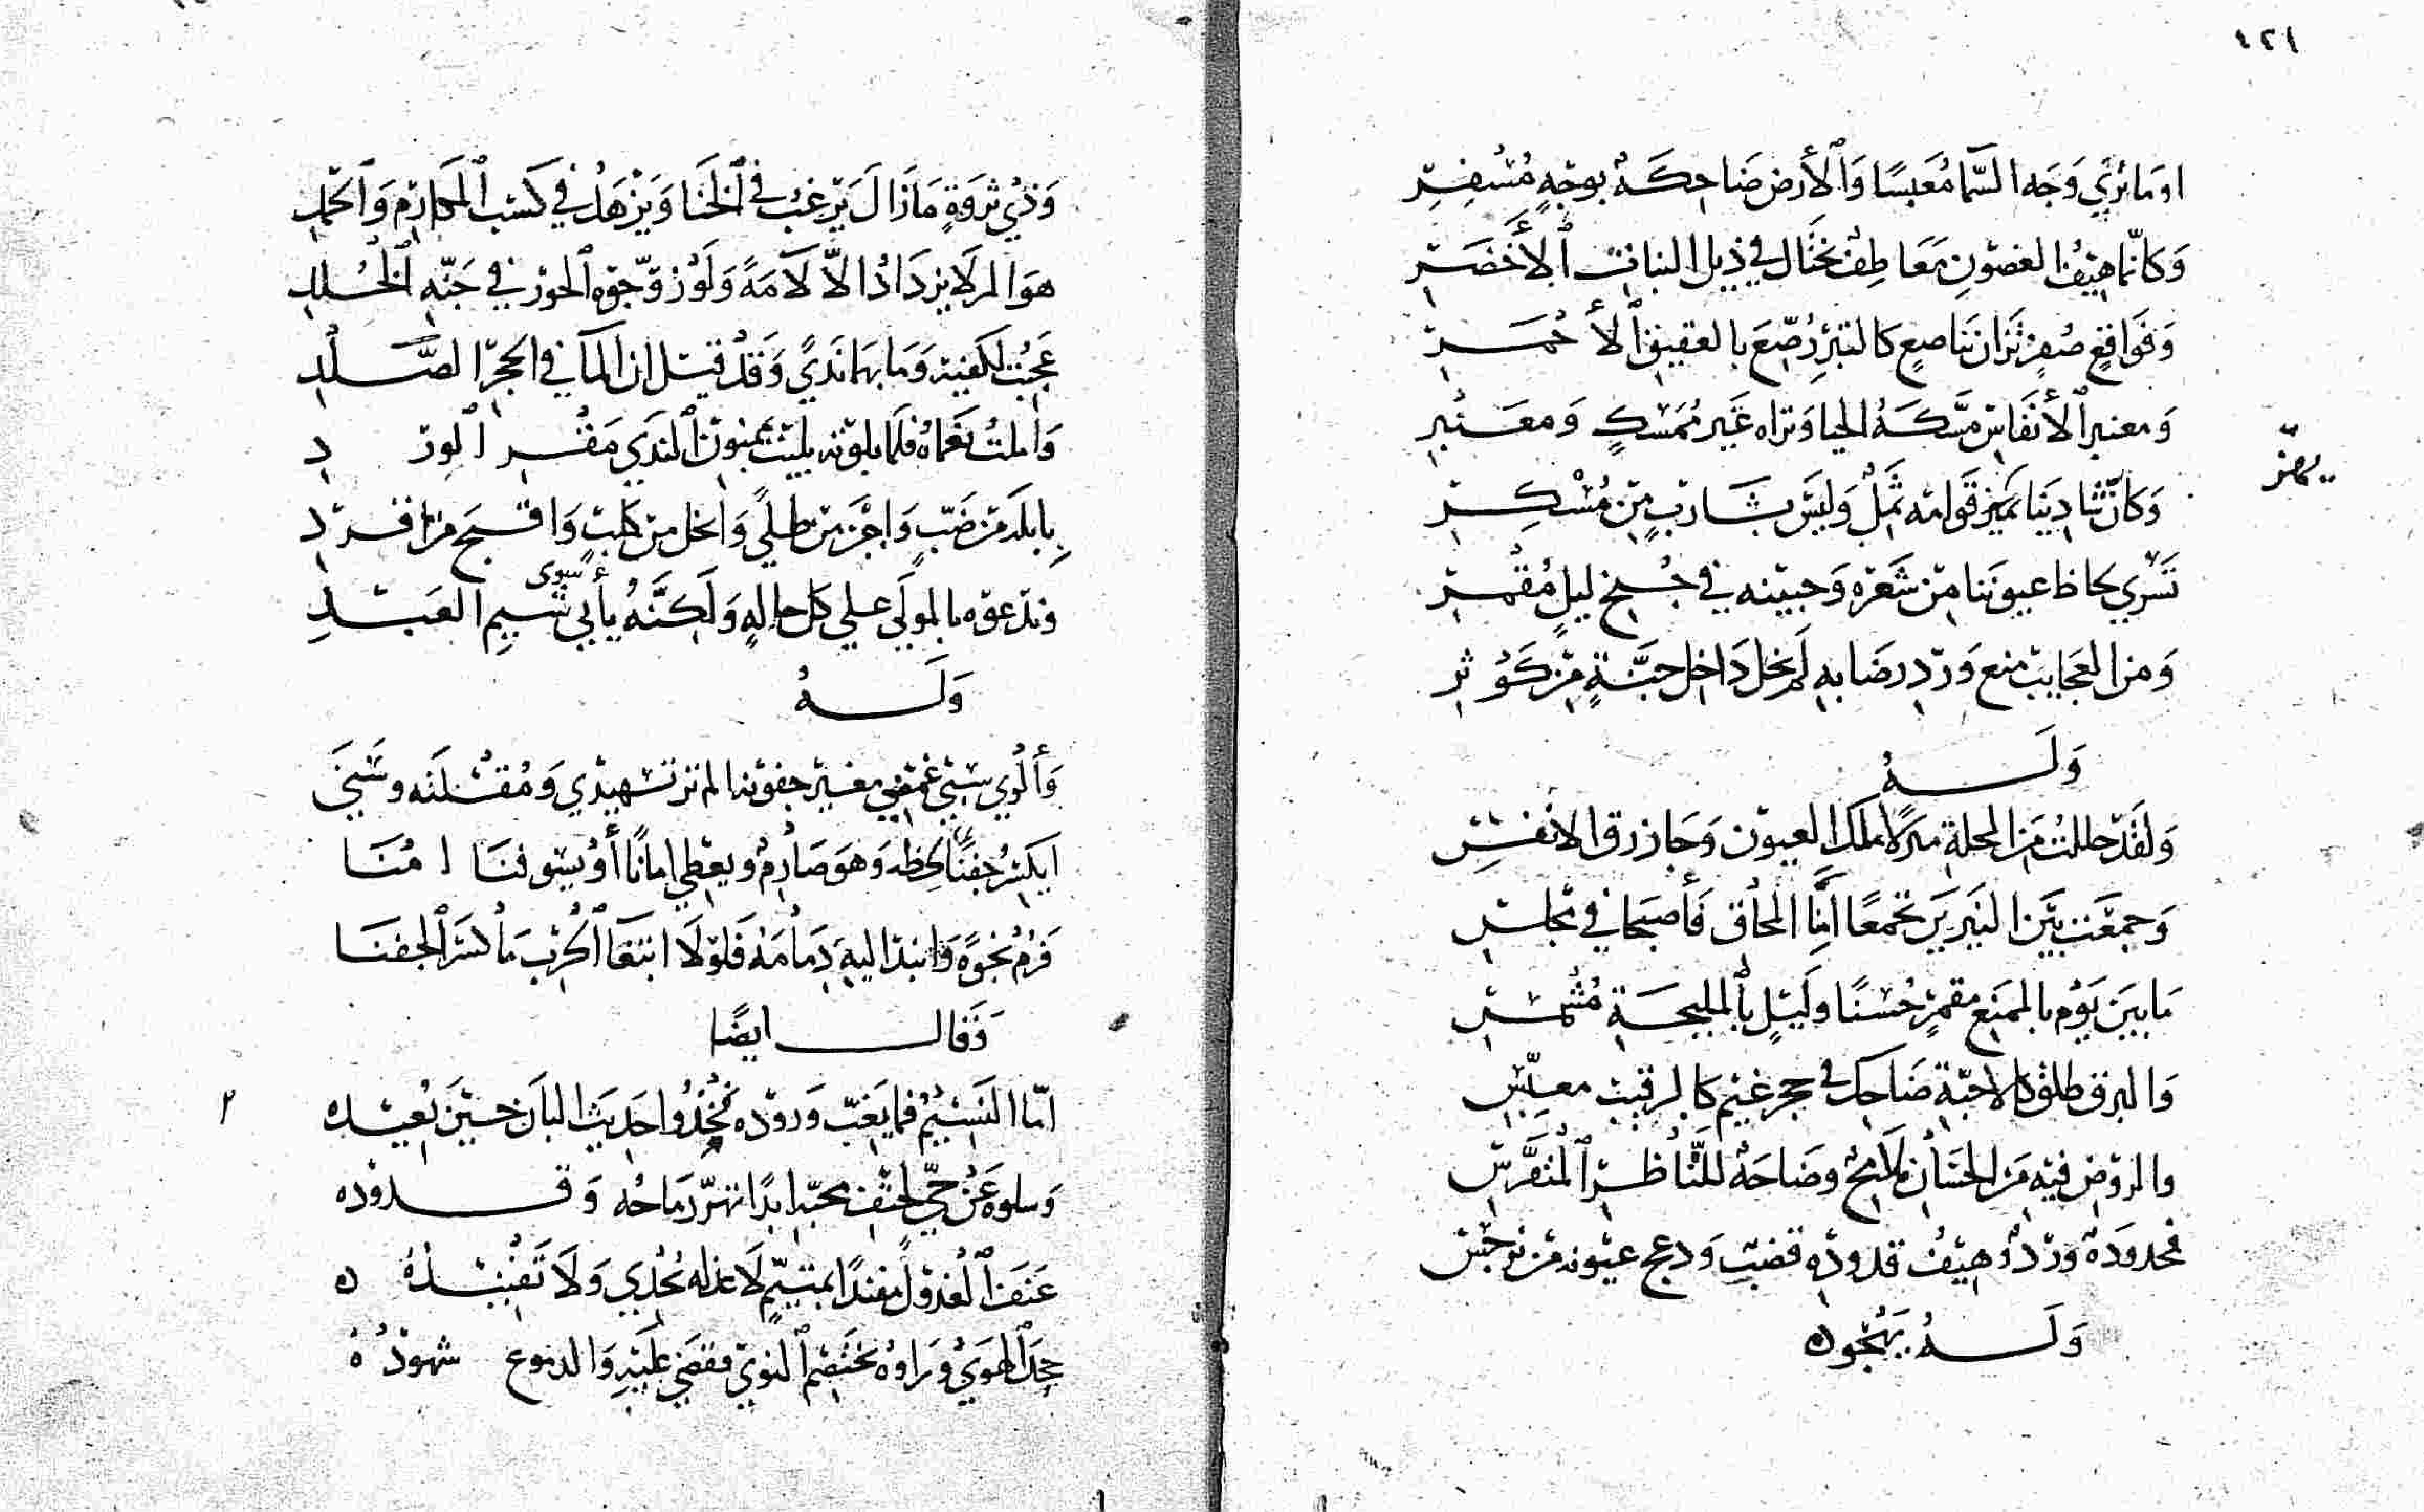 ١٢٤
او ما ترى وجه السما معبسا والأرض ضاحكة بوجه مسفر
وكانما هيف الغصون معاطف تختال في ذيل النبات الأخضر
وفواقع صفر تزان بناصع كالتبر رصع بالعقيق الأحمر
ومعنبر الأنفاس مسكه الحيا وتراه غير ممسك ومعنبر
يهز
وكان ثنا دينا قوامه ثمل وليس بشارب من مسكر
تسري لحاظ عيوننا من شعره وجبينه في جنح ليل مقمر
ومن العجايب منع ورد رضابه لم يخل داخل جنة من كوثر
وله
ولقد حللت من المحلة منزلا ملك العيون وحاز رق الانفس
وجمعت بين النيرين تجمعا أمنا المحاق فأصبحا في مجلس
ما بين يوم بالممنع مقمر حسنا وليل بالمليحة مشمس
والبرق طلق كالاحبة ضاحك في حجر غيم كالرقيب معبس
والروض فيه من الحسان ملامح وضاحة للناظر المتفرس
فخدوده ورد وهيف قدوده قضب ودعج عيونه من نرجس
وله يهجو
وذي ثروة ما زال يرغب في الخنا ويزهد في كسب المكارم والحمد
هو المر لا يزداد الا لآمة ولو زوجوه الحور في جنه الخلد
عجبت لكفيه وما بهما ندي وقد قيل ان الما في الحجر الصلد
واملت نعماه فلما بلوته بليت بمنون الندي مقفر الورد
بابلد من ضب واجز من طلي وابخل من كلب واقبح من قرد
وندعوه بالمولي علي كل حاله ولكنه يأبي سوى شيم العبد
وله
وألوي سبي غمضي مغير جفونه الم تر تسهيدي ومقلته وسني
ايكسر جفنا لحظه وهو صارم ويعطي امانا أو يسوفنا امنا
فرم نحوه وانبذ اليه ذمامه فلولا ابتغا الحرب ما كسر الجفنا
وقال ايضا
اما النسيم فما يغب وروده فخذوا حديث البان حين يعيده
وسلوه عن حي لحتف محبه ابدا تهز رماحه وقدوده
عنف العذول مفندا بمتيم لا عذله يجدي ولا تفنيده
جحد الهوي وراوه يختصم النوي فقضي عليه والدموع شهوده